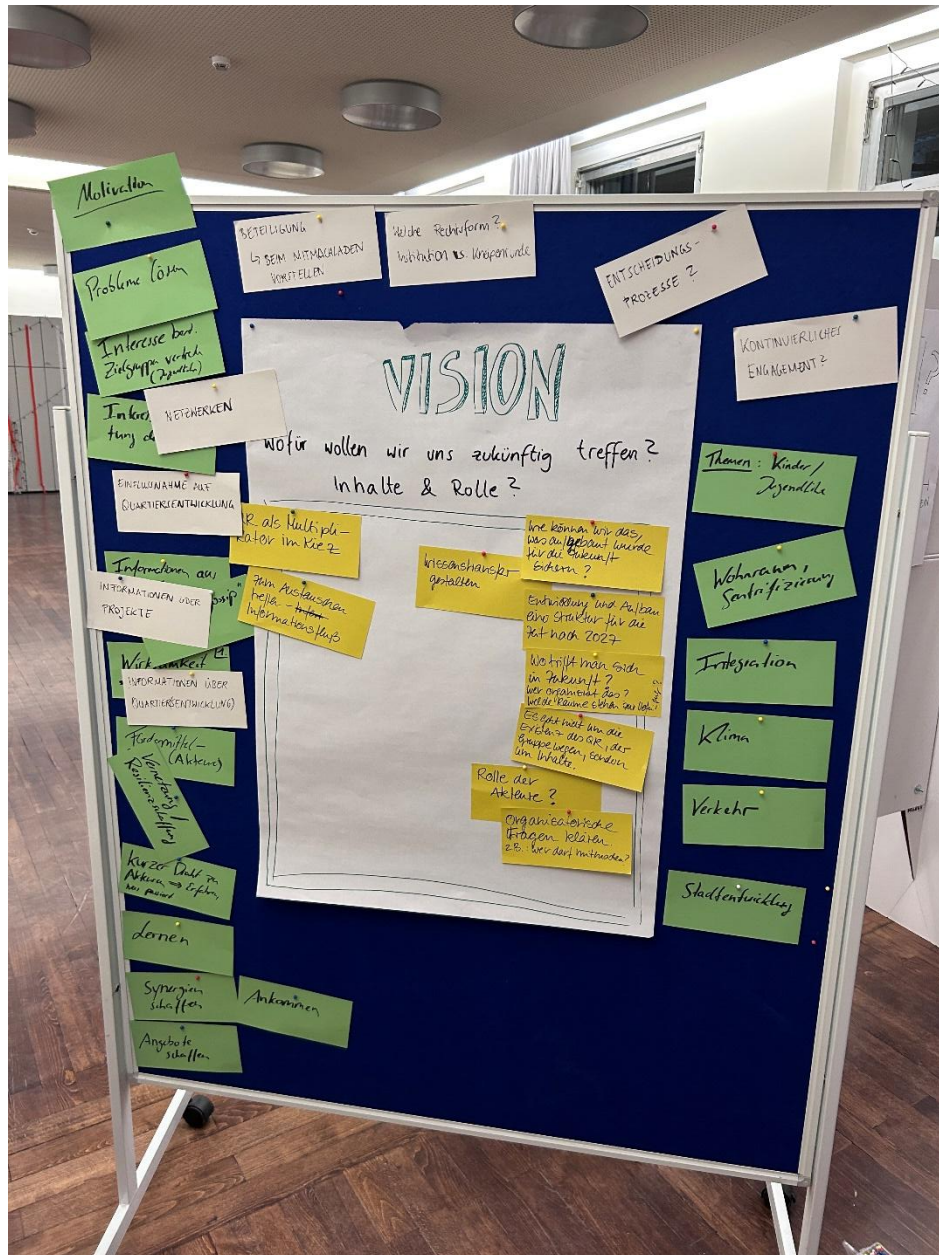 Motivation
Probleme lösen
Interesse best.
Zielgruppe vertreten
(Jugendliche)
NETZWERKEN
EINFLUSNAHME AUF
QUARTIERSENTWICKLUNG
Informationen aus
INFORMATIONEN ÜBER
PROJEKTE
INFORMATIONEN ÜBER
QUARTIERSENTWICKLUNG)
Fördermittel-
(Akteur)
Vernetzung /
Kurzer Draht zu
Akteuren => Erfahren,
was passiert
Lernen
Synergien
schaffen
Ankommen
Angebote
schaffen
BETEILIGUNG
↳ BEIM MITMACHLADEN
VORSTELLEN
Welche Rechtsform?
Institution vs. Kneipenrunde
ENTSCHEIDUNGS-
PROZESSE?
KONTINUIERLICHES
ENGAGEMENT?
VISION
Wofür wollen wir uns zukünftig treffen?
Inhalte & Rolle?
QR als Multipli-
kator im Kiez
Zum Austauschen
treffen -
Informationsfluß
Wissenstransfer
gestalten
Wie können wir das,
was aufgebaut wurde
für die Zukunft
sichern?
Entwicklung und Aufbau
eine Struktur für die
Zeit nach 2027
Wo trifft man sich
in Zukunft?
Wer organisiert das?
Welche Räume stehen zur Verfüg.?
Es geht nicht um die
Existenz des QR, der
Gruppe wegen, sondern
um Inhalte.
Rolle der
Akteure?
Organisatorische
Fragen klären.
z.B.: Wer darf mitmachen?
Themen: Kinder/
Jugendliche
Wohnraum,
Gentrifizierung
Integration
Klima
Verkehr
Stadtentwicklung